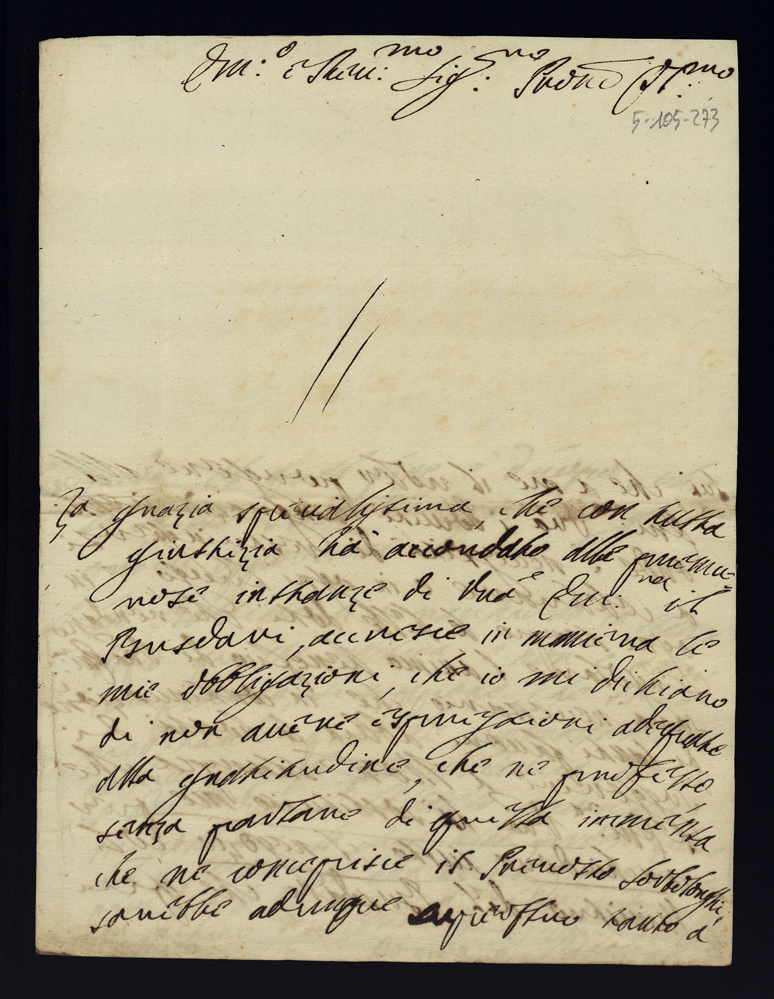 Em:º e Rev:mo Sig:re Prone
5-105-273
La grazia specialissima, che con tutta
giustizia ha accordato alle premu-
rose instanze di Vrã Em:za il
Busdavi, accresce in maniera le
mie obbligazioni, che io mi dichiaro
di non avere espressioni adequate
alla gratitudine, che ne professo
senza parlare di questa immensa
che ne concepisce il Prevosto
sarebbe adunque tanto à